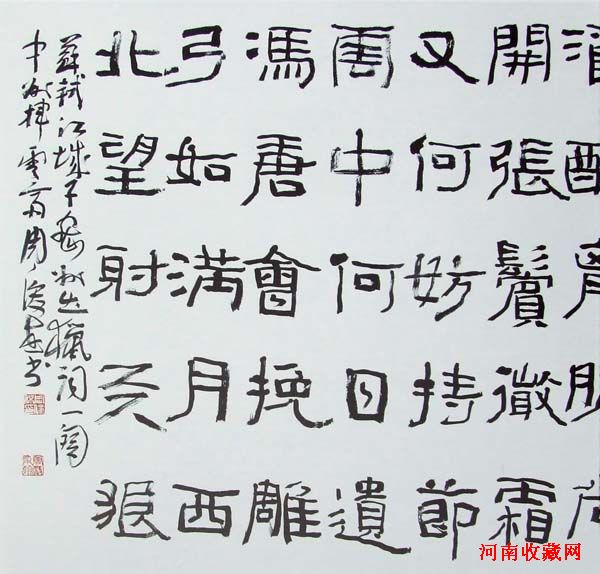 酒酣胸胆尚
開張鬢微霜
又何妨持節
雲中何日遣
馮唐會挽雕
弓如満月西
北望射天狼
蘇軾江城子密州出獵词一阕
中州揮雲斋周俊杰书
河南收藏网